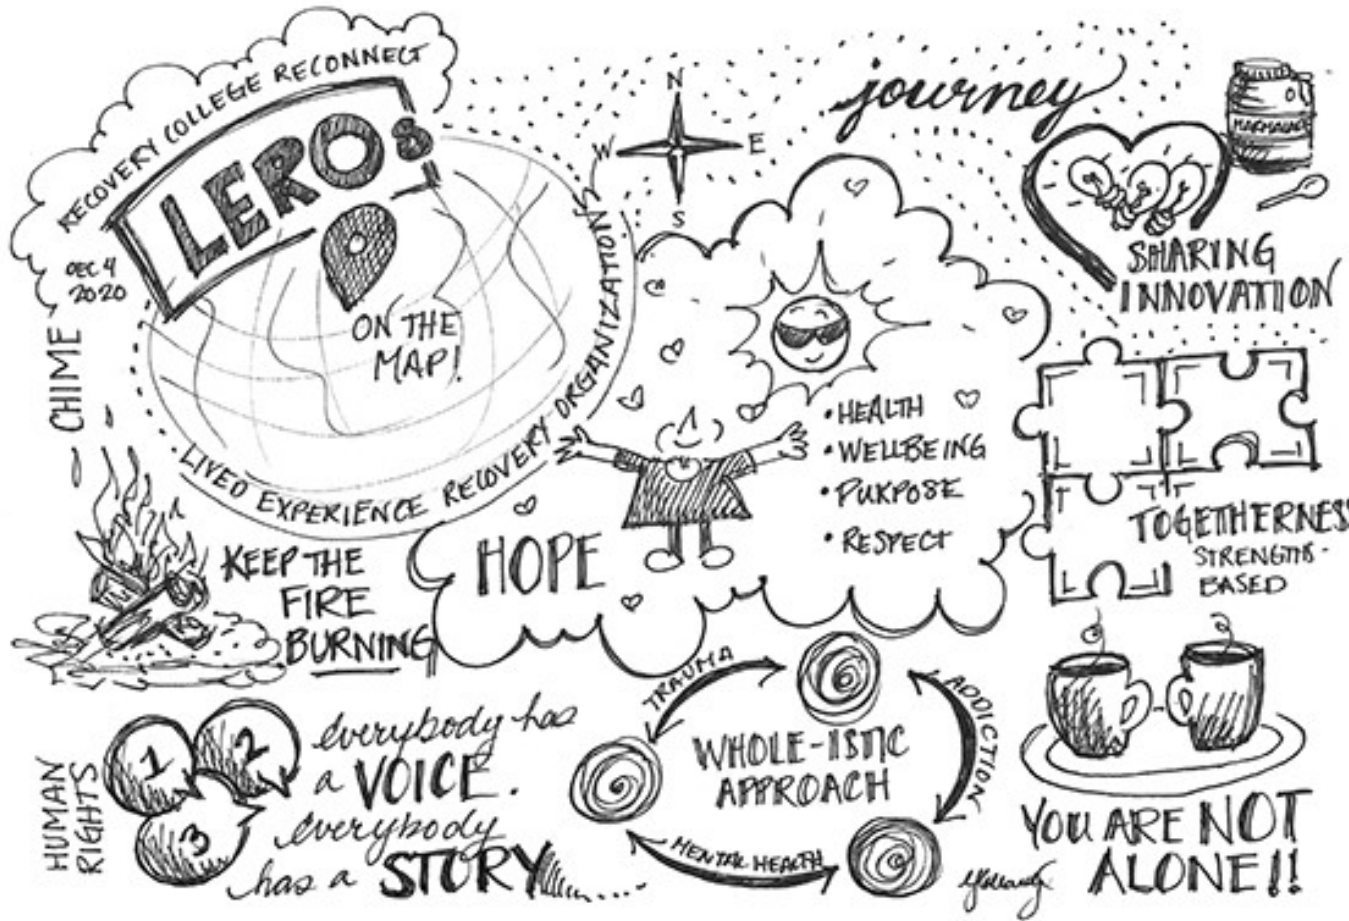 RECOVERY COLLEGE RECONNECT
LEROs
DEC 4
2020
ON THE
MAP!
LIVED EXPERIENCE RECOVERY ORGANIZATIONS
CHIME
N
W
E
S
journey
MARMALADE
SHARING
INNOVATION
• HEALTH
• WELLBEING
• PURPOSE
• RESPECT
HOPE
TOGETHERNESS
STRENGTHS-
BASED
KEEP THE
FIRE
BURNING
HUMAN
RIGHTS
1
2
3
everybody has
a VOICE.
everybody
has a STORY....
TRAUMA
ADDICTION
MENTAL HEALTH
WHOLE-ISTIC
APPROACH
YOU ARE NOT
ALONE!!